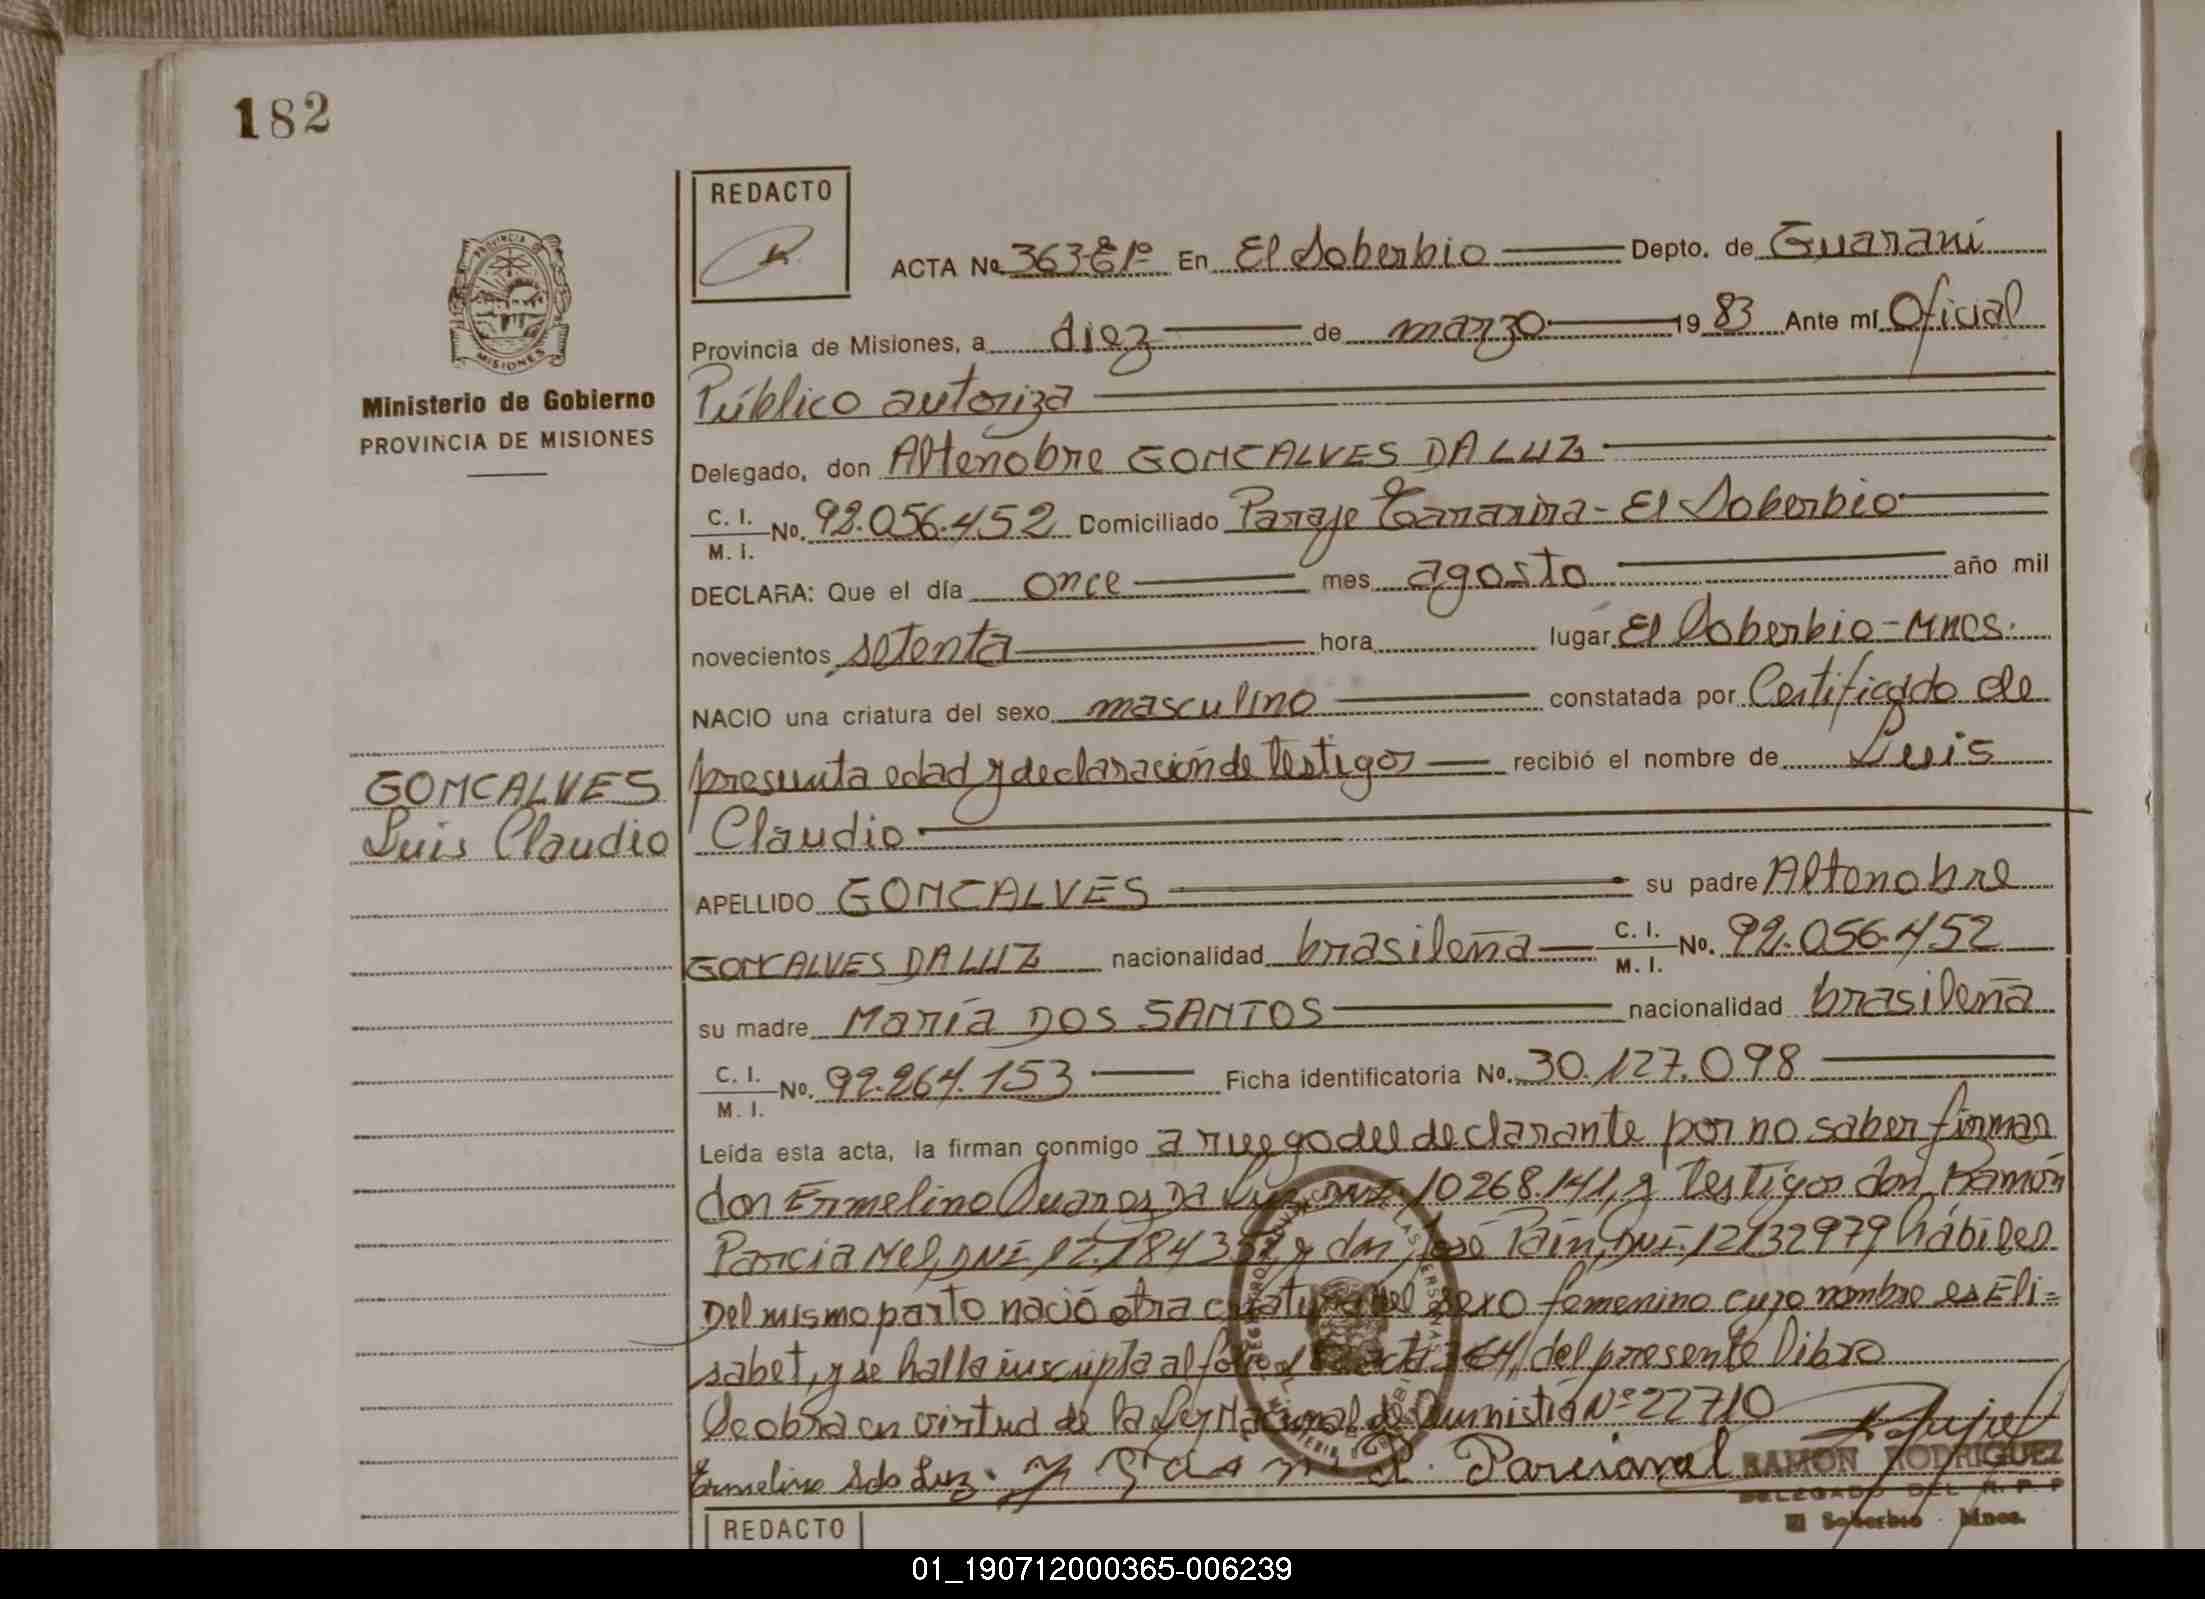 182
REDACTO
PROVINCIA DE
MISIONES
Ministerio de Gobierno
PROVINCIA DE MISIONES
ACTA No. 363-E1º En El Soberbio Depto. de Guaraní
Provincia de Misiones, a diez de marzo 1983 Ante mí Oficial
Público autoriza
Delegado, don Altenobre GONCALVES DA LUZ
C. I. M. I. No. 92.056.452 Domiciliado Paraje - El Soberbio
DECLARA: Que el día once mes agosto año mil
novecientos setenta hora lugar El Soberbio-Mnes.
NACIO una criatura del sexo masculino constatada por Certificado de
presunta edad y declaración de testigos recibió el nombre de Luis
Claudio
GONCALVES
Luis Claudio
APELLIDO GONCALVES su padre Altenobre
GONCALVES DA LUZ nacionalidad brasileña C. I. M. I. No. 92.056.452
su madre María DOS SANTOS nacionalidad brasileña
C. I. M. I. No. 92.264.153 Ficha identificatoria No. 30.127.098
Leída esta acta, la firman conmigo a ruego del declarante por no saber firmar
don Ermelino Da Luz DNI 10268.141, y testigos don Ramón
DNI y don José DNI. 12132979 hábiles
Del mismo parto nació otra criatura del sexo femenino cuyo nombre es Eli=
sabet, y se halla inscripta al folio acta 364, del presente libro
Se obra en virtud de la Ley Nacional de Nº 22710
Ermelino
RAMON RODRIGUEZ
DELEGADO DEL R. P. P
El Soberbio Mnes.
REDACTO
01_190712000365-006239